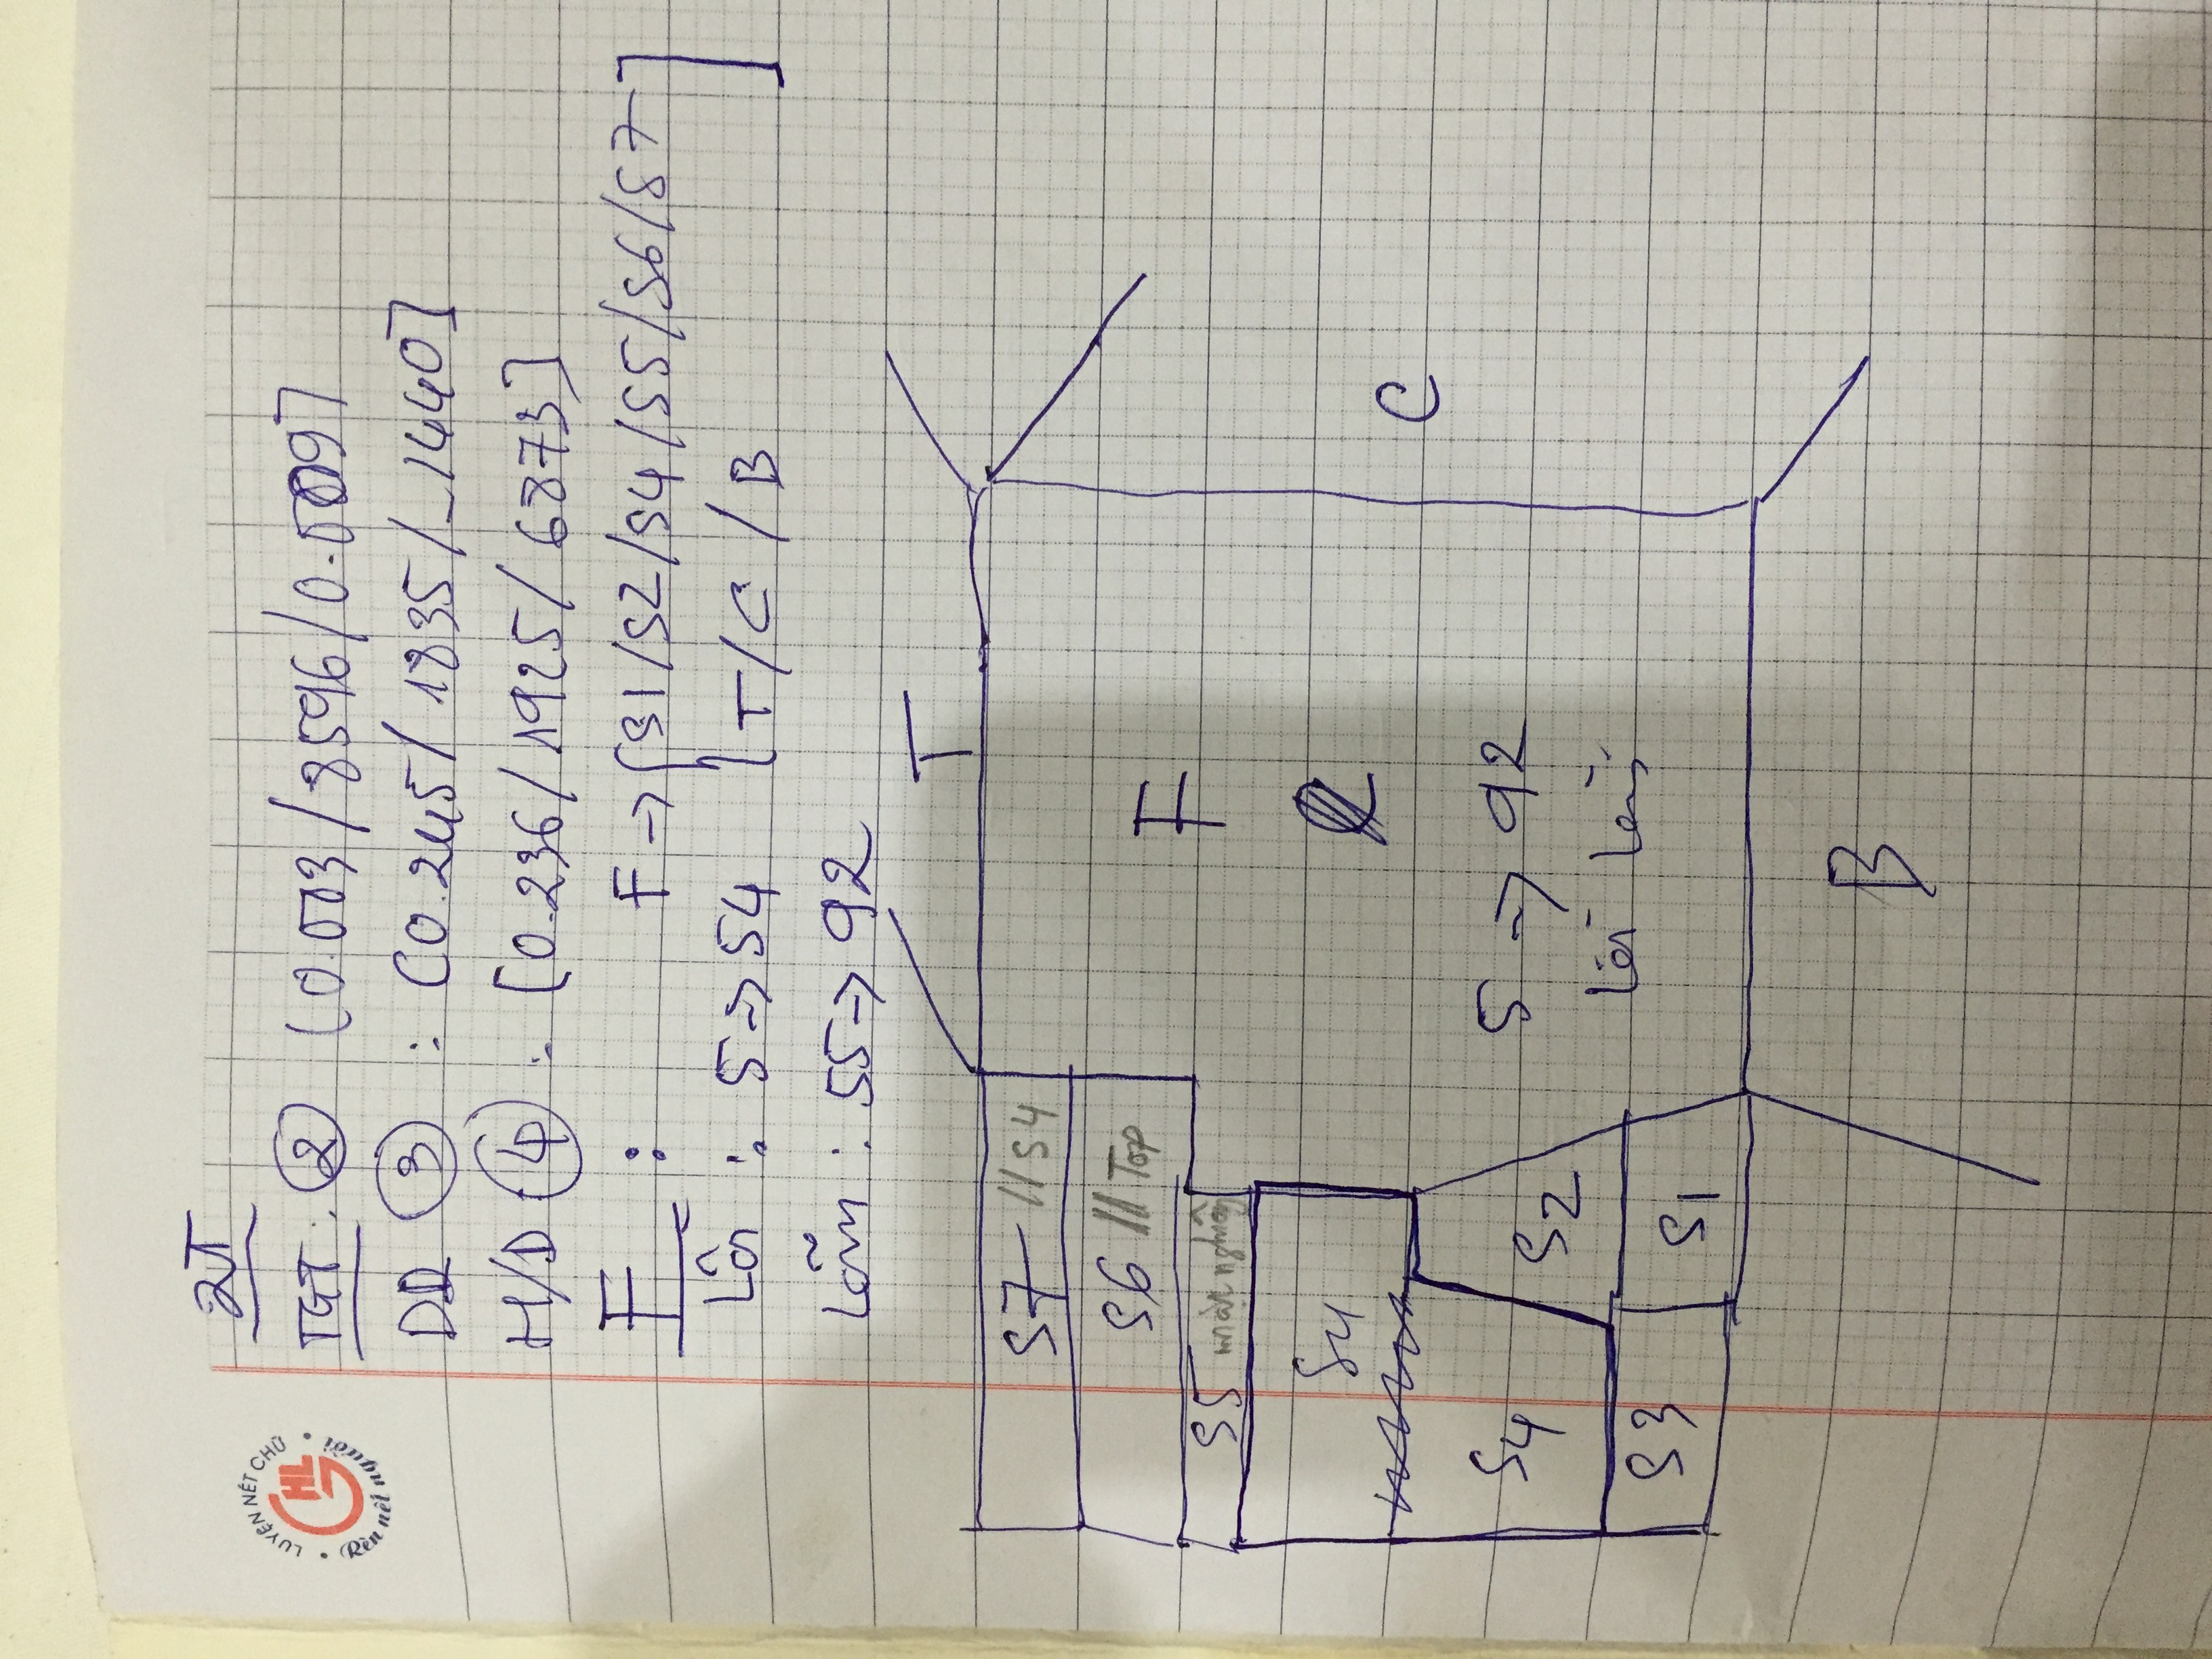 LUYỆN NÉT CHỮ
HL
G
Rèn nết người
2T
TGT : ② [0.003/8596/0.0009]
DD ③ : [0.245/1835/-1440]
H/D ④ : [0.236/1925/6873]
F : F → [S1/S2/S4/S5/S6/S7
Lồi : 5 → 54 [T/C/B]
Lõm : 55 → 92
T
S7 // S4
S6 // Top
F
S5 mặt nghiêng
S4
C
S4
S2
5 → 92
Lồi Lõm
S3
S1
B